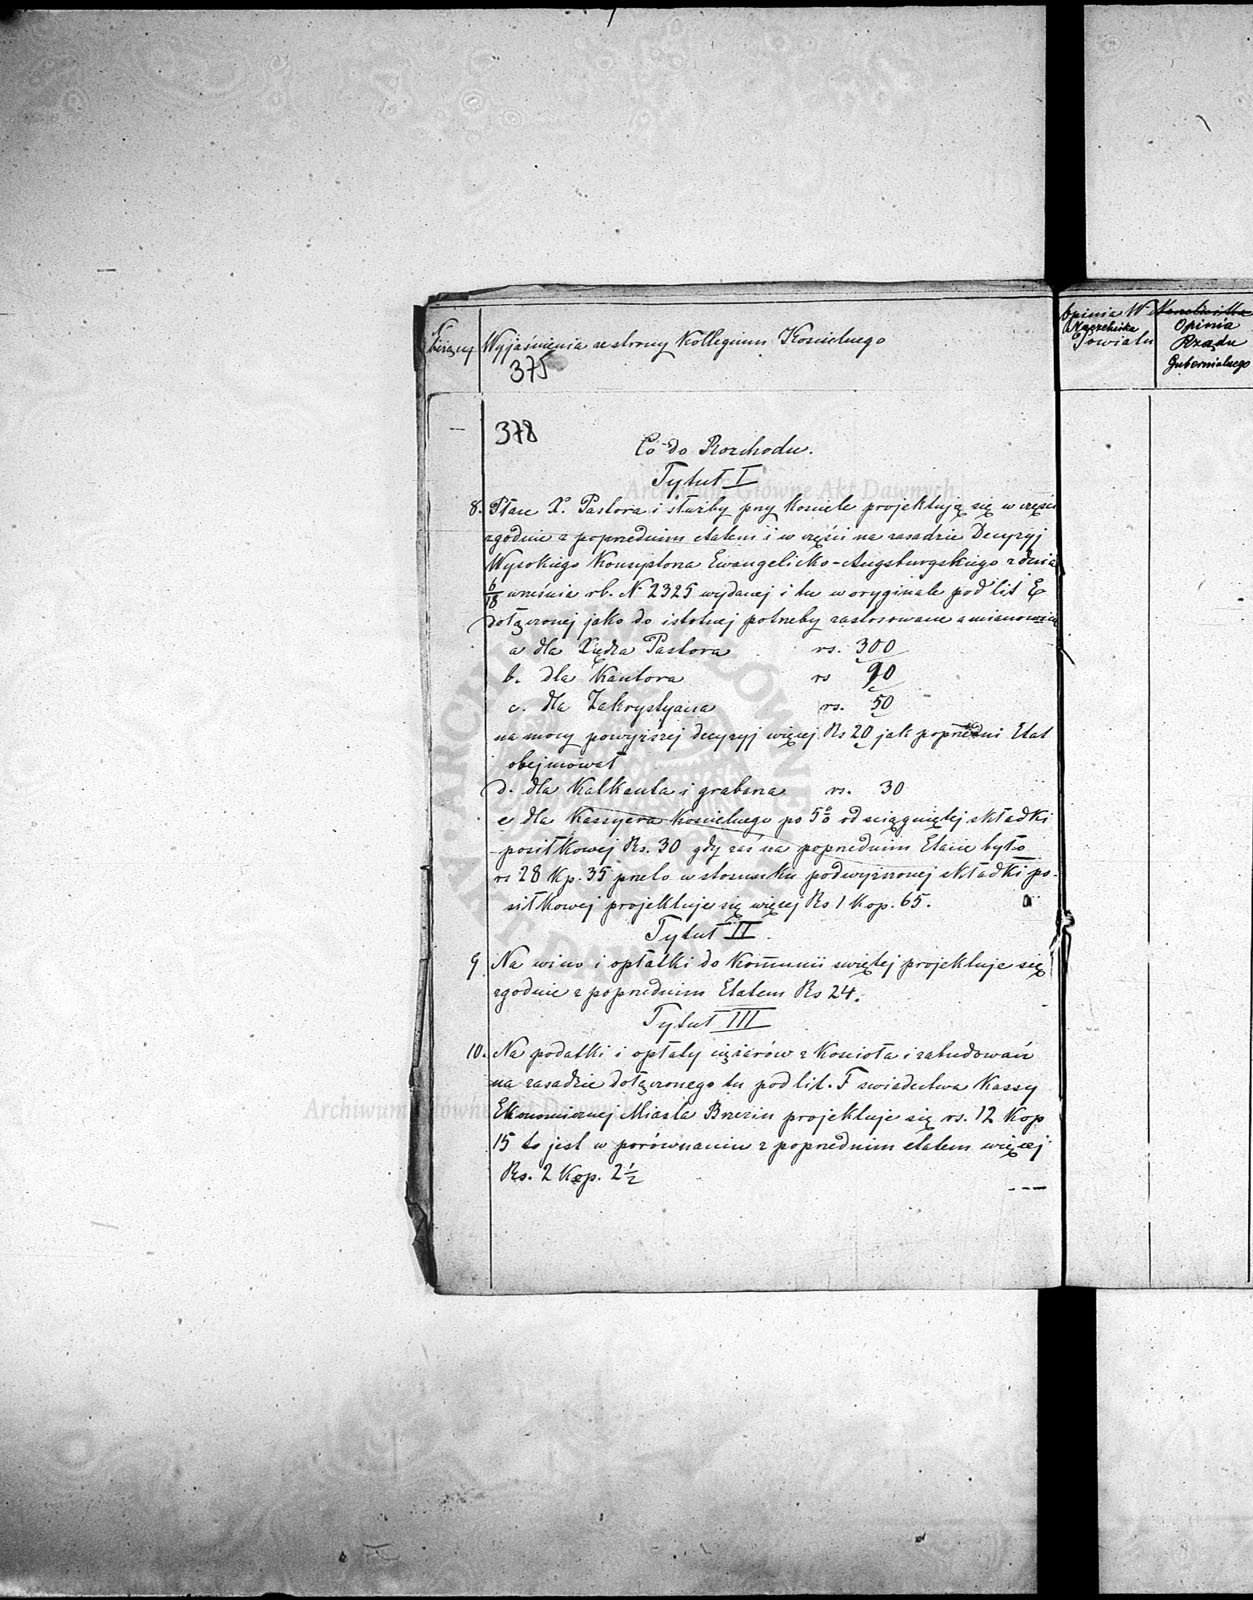 bieżący
Wyjaśnienia ze strony Kollegium Kościelnego
375
Opinia W
Naczelnika
Powiatu
Opinia
Rządu
Gubernialnego
378
Co do Rozchodu.
Tytuł I
8. Płace X. Pastora i służby przy kościele projektują się w części
zgodnie z poprzednim etatem i w części na zasadzie Decyzyi
Wysokiego Konsystorza Ewangelicko-Augsburgskiego z dnia
6/18 września rb. N 2325 wydanej i tu w oryginale pod lit E
dołączonej jako do istotnej potrzeby zastosowane a mianowicie
a dla Xiędza Pastora rs. 300
b. dla Kantora rs 90
c. dla Zakrystyana rs. 50
na mocy powyższej decyzyi więcej Rs 20 jak poprzedni Etat
obejmował
d. dla Kalkanta i grabarza rs. 30
e dla Kassyera kościelnego po 5% od ściągniętej składki
posiłkowej Rs. 30 gdy zaś na poprzednim Etacie było
rs 28 kp. 35 przeto w stosunku podwyższonej składki po-
siłkowej projektuje się więcej Rs 1 kop. 65.
Tytuł II.
9 Na wino i opłatki do Kommunii świętej projektuje się
zgodnie z poprzednim Etatem Rs 24.
Tytuł III
10. Na podatki i opłaty ciężarów z kościoła i zabudowań
na zasadzie dołączonego tu pod lit. F świadectwa Kassy
Ekonomicznej Miasta Brzezin projektuje się rs. 12 kop
15 to jest w porównaniu z poprzednim etatem więcej
Rs. 2 Kop. 2 1/2
Archiwum Główne Akt Dawnych